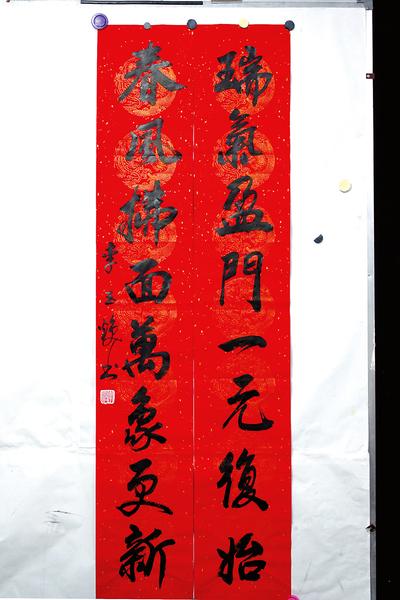 瑞氣盈門一元復始
春風拂面萬象更新
李三